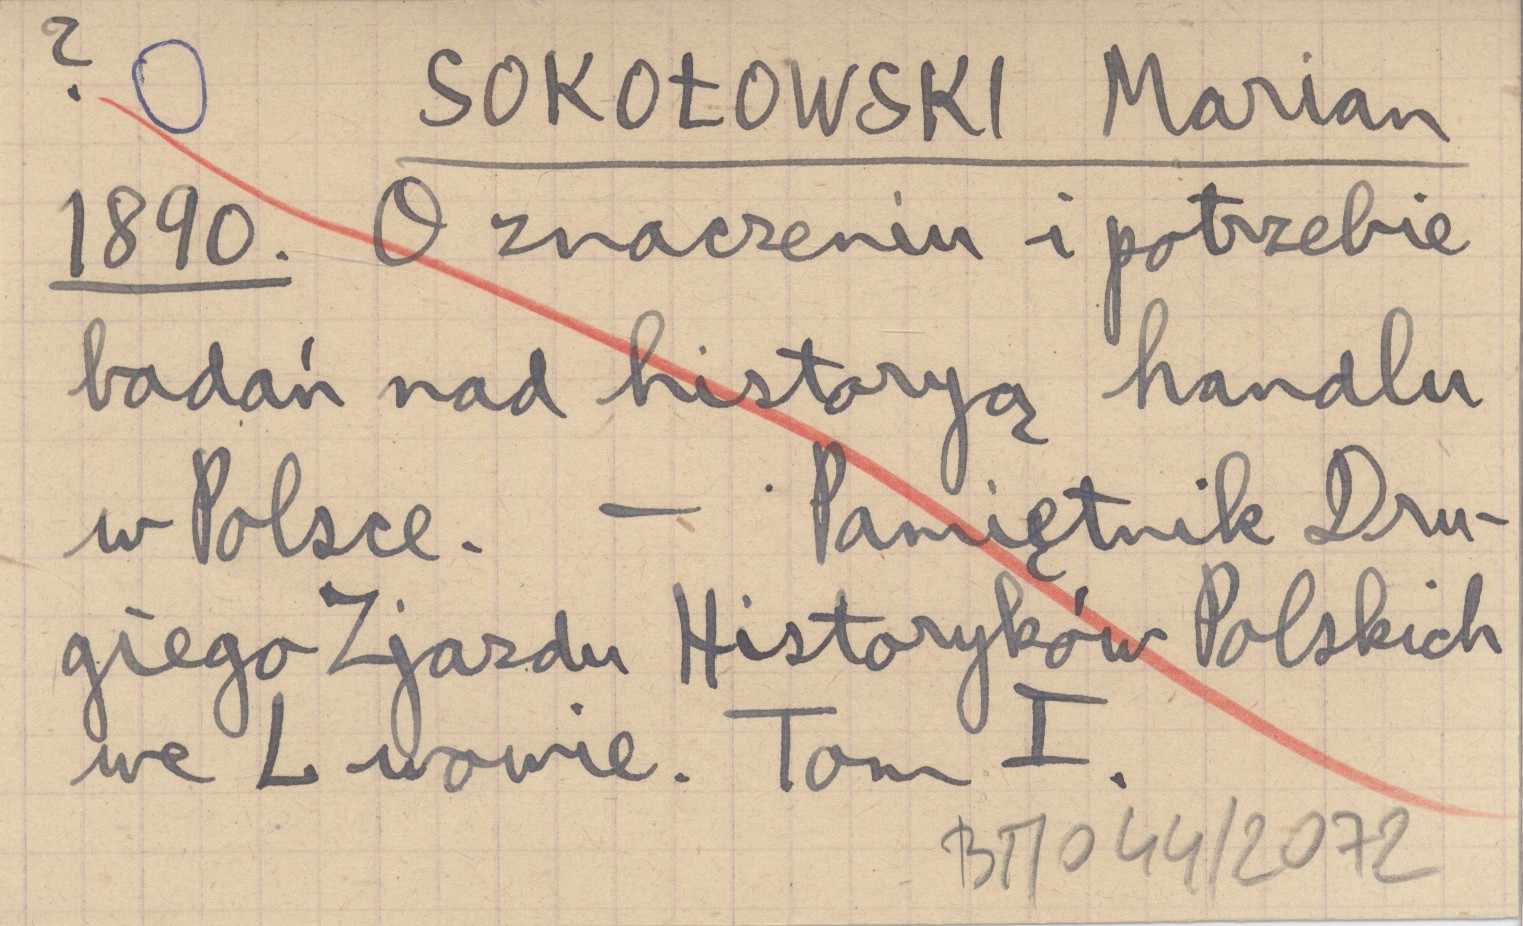 ?
O SOKOŁOWSKI Marian
1890. O znaczeniu i potrzebie
badań nad historyą handlu
w Polsce. — Pamiętnik Dru-
giego Zjazdu Historyków Polskich
we Lwowie. Tom I.
BTI/044/2072